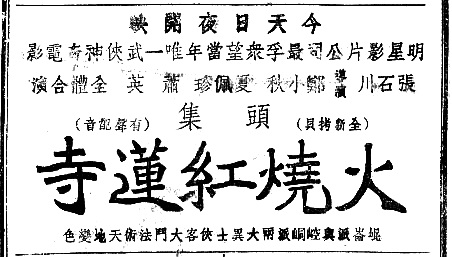 今天日夜開映
明星影片公司最孚衆望當年唯一武俠神奇電影
張石川 導演 鄭小秋 夏佩珍 蕭英 全體合演
(全新拷貝) 頭集 (有聲配音)
火燒紅蓮寺
崐崙派與崆峒派兩大異士俠客大鬥法術天地變色